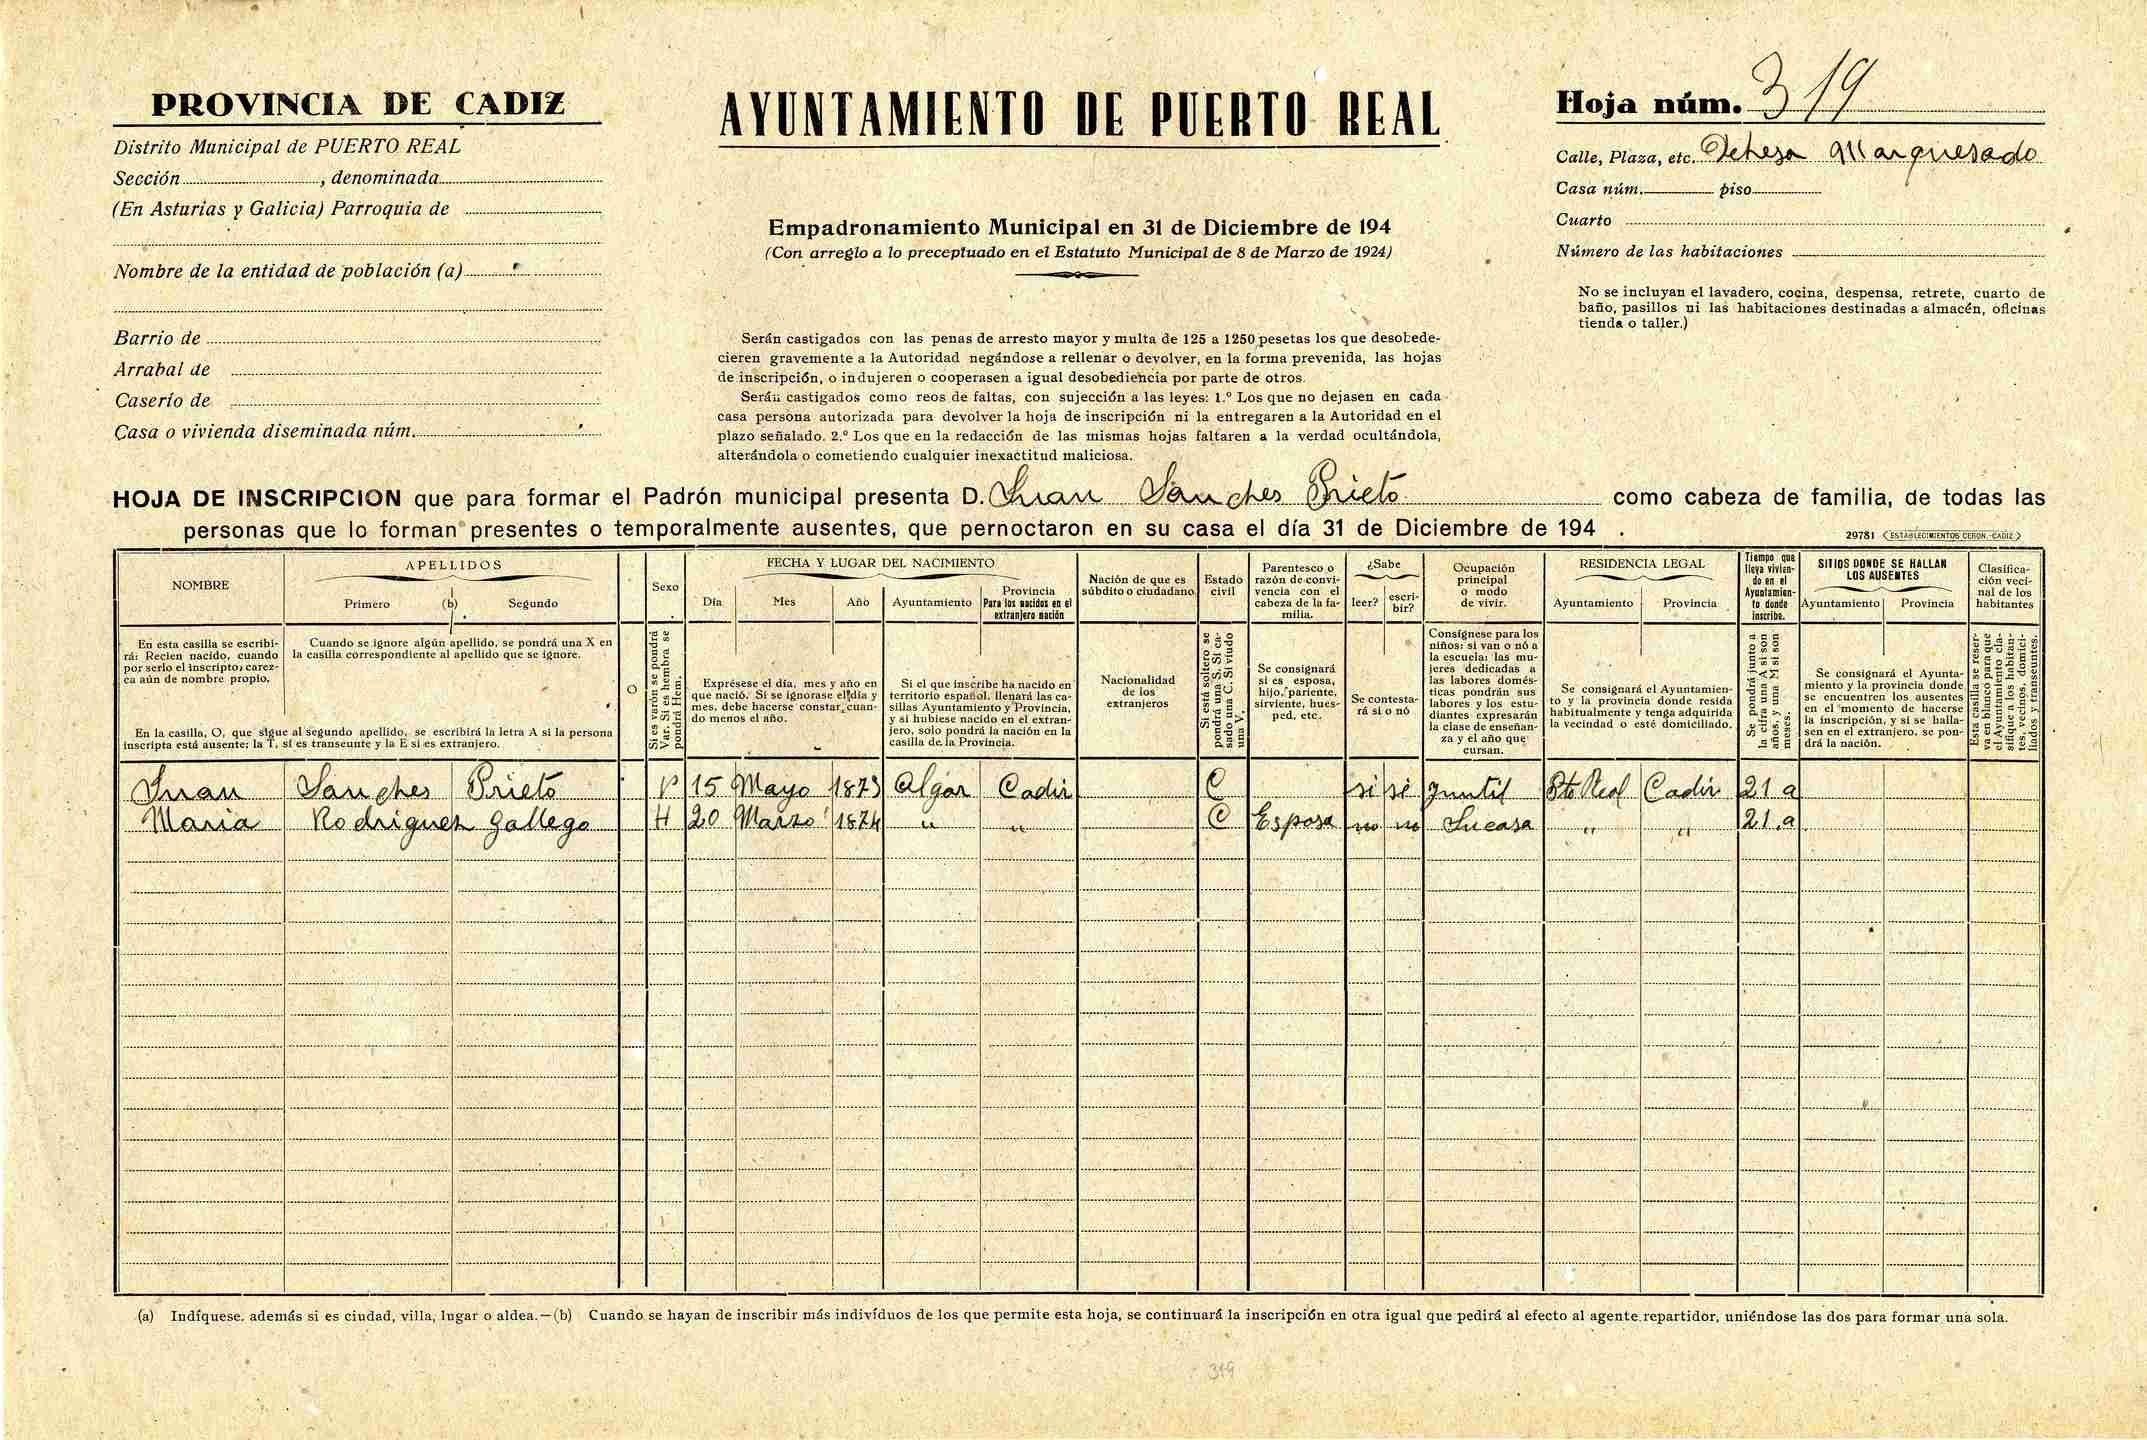 PROVINCIA DE CADIZ
Distrito Municipal de PUERTO REAL
Sección , denominada
(En Asturias y Galicia) Parroquia de
Nombre de la entidad de población (a)
Barrio de
Arrabal de
Caserío de
Casa o vivienda diseminada núm.
AYUNTAMIENTO DE PUERTO REAL
Empadronamiento Municipal en 31 de Diciembre de 194
(Con arreglo a lo preceptuado en el Estatuto Municipal de 8 de Marzo de 1924)
Serán castigados con las penas de arresto mayor y multa de 125 a 1250 pesetas los que desobede-
cieren gravemente a la Autoridad negándose a rellenar o devolver, en la forma prevenida, las hojas
de inscripción, o indujeren o cooperasen a igual desobediencia por parte de otros.
Serán castigados como reos de faltas, con sujección a las leyes: 1.º Los que no dejasen en cada
casa persona autorizada para devolver la hoja de inscripción ni la entregaren a la Autoridad en el
plazo señalado. 2.º Los que en la redacción de las mismas hojas faltaren a la verdad ocultándola,
alterándola o cometiendo cualquier inexactitud maliciosa.
Hoja núm. 319
Calle, Plaza, etc. Dehesa Marquesado
Casa núm. piso
Cuarto
Número de las habitaciones
No se incluyan el lavadero, cocina, despensa, retrete, cuarto de
baño, pasillos ni las habitaciones destinadas a almacén, oficinas
tienda o taller.)
HOJA DE INSCRIPCION que para formar el Padrón municipal presenta D. Juan Sanches Prieto como cabeza de familia, de todas las
personas que lo forman presentes o temporalmente ausentes, que pernoctaron en su casa el día 31 de Diciembre de 194 .
29781 (ESTABLECIMIENTOS CERON.-CADIZ)
NOMBRE
APELLIDOS
Primero (b) Segundo
O
Sexo
FECHA Y LUGAR DEL NACIMIENTO
Día Mes Año Ayuntamiento
Provincia
Para los nacidos en el
extranjero nación
Nación de que es
súbdito o ciudadano
Estado
civil
Parentesco o
razón de convi-
vencia con el
cabeza de la fa-
milia.
¿Sabe
leer? escri-
bir?
Ocupación
principal
o modo
de vivir.
RESIDENCIA LEGAL
Ayuntamiento Provincia
Tiempo que
lleva vivien-
do en el
Ayuntamien-
to donde
inscribe.
SITIOS DONDE SE HALLAN
LOS AUSENTES
Ayuntamiento Provincia
Clasifica-
ción veci-
nal de los
habitantes
En esta casilla se escribi-
rá: Recien nacido, cuando
por serlo el inscripto, carez-
ca aún de nombre propio.
Cuando se ignore algún apellido, se pondrá una X en
la casilla correspondiente al apellido que se ignore.
En la casilla, O, que sigue al segundo apellido, se escribirá la letra A si la persona
inscripta está ausente; la T, si es transeunte y la E si es extranjero.
Si es varón se pondrá
Var. Si es hembra se
pondrá Hem.
Exprésese el día, mes y año en
que nació. Si se ignorase el día y
mes, debe hacerse constar, cuan-
do menos el año.
Si el que inscribe ha nacido en
territorio español, llenará las ca-
sillas Ayuntamiento y Provincia,
y si hubiese nacido en el extran-
jero, solo pondrá la nación en la
casilla de la Provincia.
Nacionalidad
de los
extranjeros
Si está soltero se
pondrá una S. Si ca-
sado una C. Si viudo
una V.
Se consignará
si es esposa,
hijo, pariente,
sirviente, hues-
ped, etc.
Se contesta-
rá si o nó
Consígnese para los
niños: si van o nó a
la escuela: las mu-
jeres dedicadas a
las labores domés-
ticas pondrán sus
labores y los estu-
diantes expresarán
la clase de enseñan-
za y el año que
cursan.
Se consignará el Ayuntamien-
to y la provincia donde resida
habitualmente y tenga adquirida
la vecindad o esté domiciliado.
Se pondrá junto a
la cifra una A si son
años, y una M si son
meses.
Se consignará el Ayunta-
miento y la provincia donde
se encuentren los ausentes
en el momento de hacerse
la inscripción, y si se halla-
sen en el extranjero, se pon-
drá la nación.
Esta casilla se reser-
va en blanco para que
el Ayuntamiento cla-
sifique a los habitan-
tes, vecinos, domici-
liados y transeuntes.
Juan Sanches Prieto V 15 Mayo 1873 Algar Cadiz C si si Pto Real Cadiz 21 a
Maria Rodriguez Gallego H 20 Marzo 1874 " " C Esposa no no Su casa " " 21.a
(a) Indíquese. además si es ciudad, villa, lugar o aldea.—(b) Cuando se hayan de inscribir más indivíduos de los que permite esta hoja, se continuará la inscripción en otra igual que pedirá al efecto al agente repartidor, uniéndose las dos para formar una sola.
319